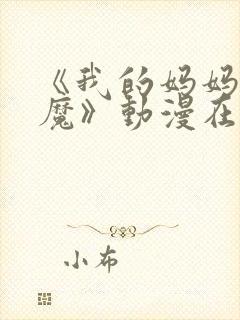 《我的妈妈
魔》動漫在
小布